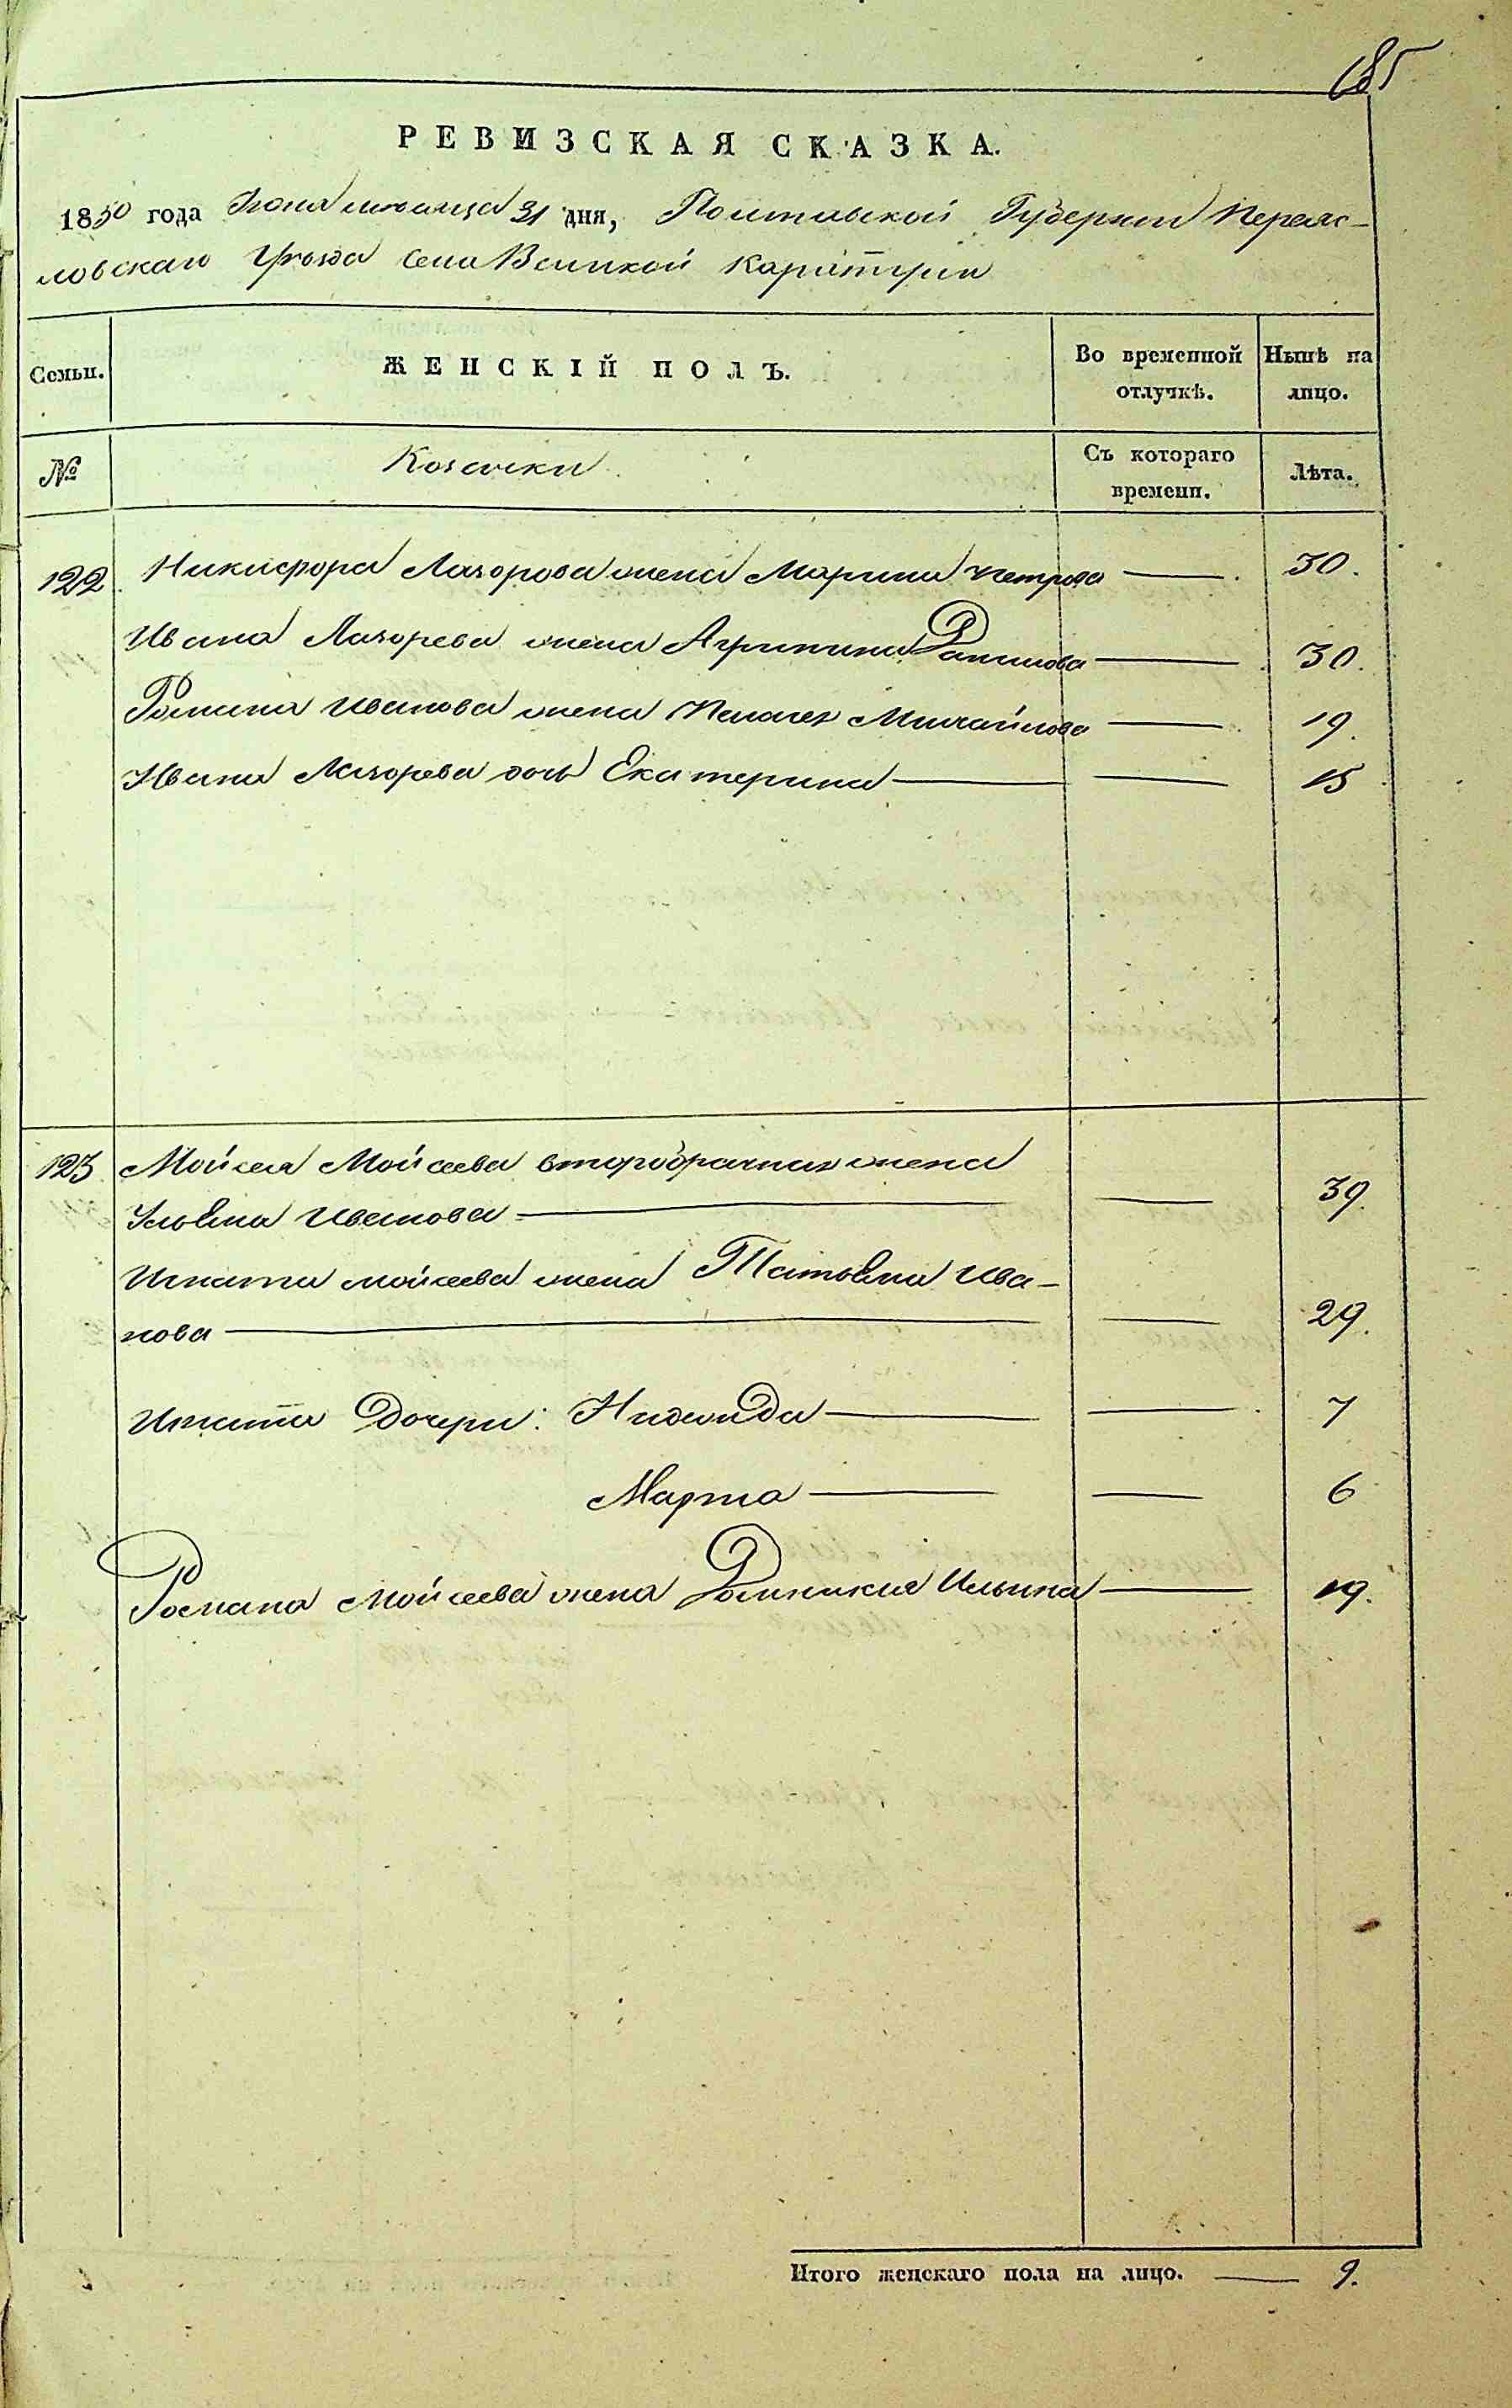 185
РЕВИЗСКАЯ СКАЗКА.
1850 года Іюля мѣсяца 31 дня, Полтавской Губерніи Переяс-
ловскаго Уѣзда села Великой Каратули
Семьи. ЖЕНСКІЙ ПОЛЪ. Во временной отлучкѣ. Нынѣ на лицо.
№ Козачки Съ котораго времени. Лѣта.
122 Никифора Лазорова жена Марина Петрова — 30.
Ивана Лазорева жена Агрипина — 30.
Романа Иванова жена Пелагея Михайлова — 19.
Ивана Лазорева дочь Екатерина — — 15
123 Мойсея Мойсеева второбрачная жена
Ульяна Иванова — — 39.
Игната Мойсеева жена Татьяна Ива-
нова — — 29.
Игната Дочери: Надежда — — 7
Марта — — 6
Романа Мойсеева жена Домникия Ильина — 19.
Итого женскаго пола на лицо. — 9.